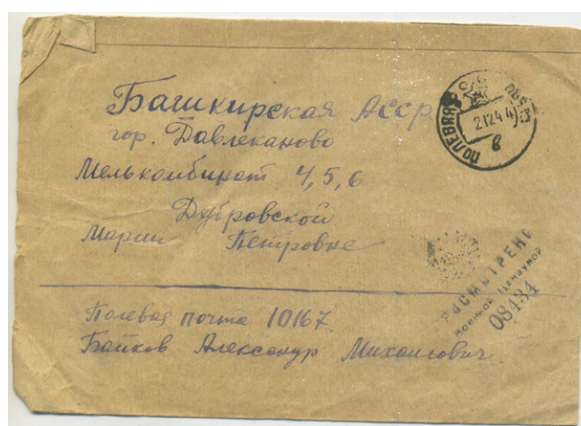 Башкирская АССР
гор. Давлеканово
Мелькомбинат 4,5,6
Дубровской
Марии Петровне
ПОЛЕВАЯ ПОЧТА
21244
в
ПРОСМОТРЕНО
Военной Цензурой
08434
Полевая почта 10167
Байков Александр Михайлович